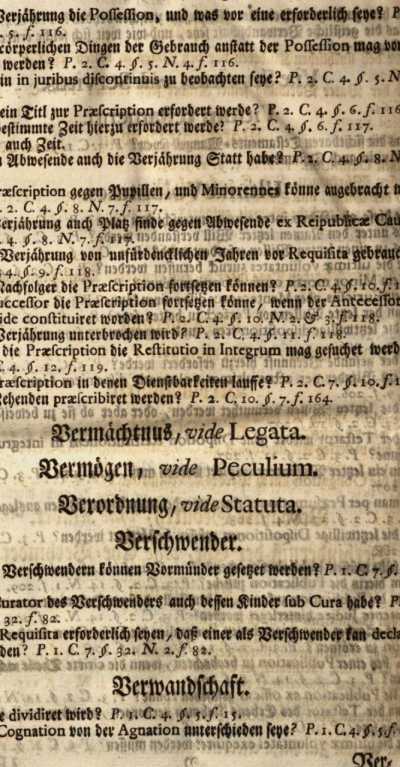 Verjährung die Possession, und was vor eine erforderlich seye? P.
5. f. 116.
cörperlichen Dingen der Gebrauch anstatt der Possession mag vor
werden? P. 2. C. 4. §. 5. N. 4. f. 116.
in in juribus discontinuis zu beobachten seye? P. 2. C. 4. §. 5. N
ein Titl zur Præscription erfordert werde? P. 2. C. 4. §. 6. f. 116
bestimmte Zeit hierzu erfordert werde? P. 2. C. 4. §. 6. f. 117.
auch Zeit.
Abwesende auch die Verjährung Statt habe? P. 2. C. 4. §. 8. N.
ræscription gegen Pupillen, und Minorennes könne angebracht w
. 2. C. 4. §. 8. N. 7. f. 117.
erjährung auch Platz finde gegen Abwesende ex Reipublicæ Cau
4. §. 8. N. 7. f. 117.
Verjährung von unfürdencklichen Jahren vor Requisita gebrauc
4. §. 9. f. 118.
Nachfolger die Præscription fortsetzen können? P. 2. C. 4. §. 10. f. 1
uccessor die Præscription fortsetzen könne, wenn der Antecessor
ide constituiret worden? P. 2. C. 4. §. 10. N. 2. & 3. f. 118.
Verjährung unterbrochen wird? P. 2. C. 4. §. 11. f. 118.
die Præscription die Restitutio in Integrum mag gesuchet werd
C. 4. §. 12. f. 119.
ræscription in denen Dienstbarkeiten lauffe? P. 2. C. 7. §. 10. f. 1
Zehenden præscribiret werden? P. 2. C. 10. §. 7. f. 164.
Vermächtnus, vide Legata.
Vermögen, vide Peculium.
Verordnung, vide Statuta.
Verschwender.
Verschwendern können Vormünder gesetzet werden? P. 1. C. 7. §.
Curator des Verschwenders auch dessen Kinder sub Cura habe? P
32. f. 82.
Requisita erforderlich seyen, daß einer als Verschwender kan decla
den? P. 1. C. 7. §. 32. N. 2. f. 82.
Verwandschaft.
e dividiret wird? P. 1. C. 4. §. 5. f. 15.
Cognation von der Agnation unterschieden seye? P. 1. C. 4. §. 5. f.
Ver-